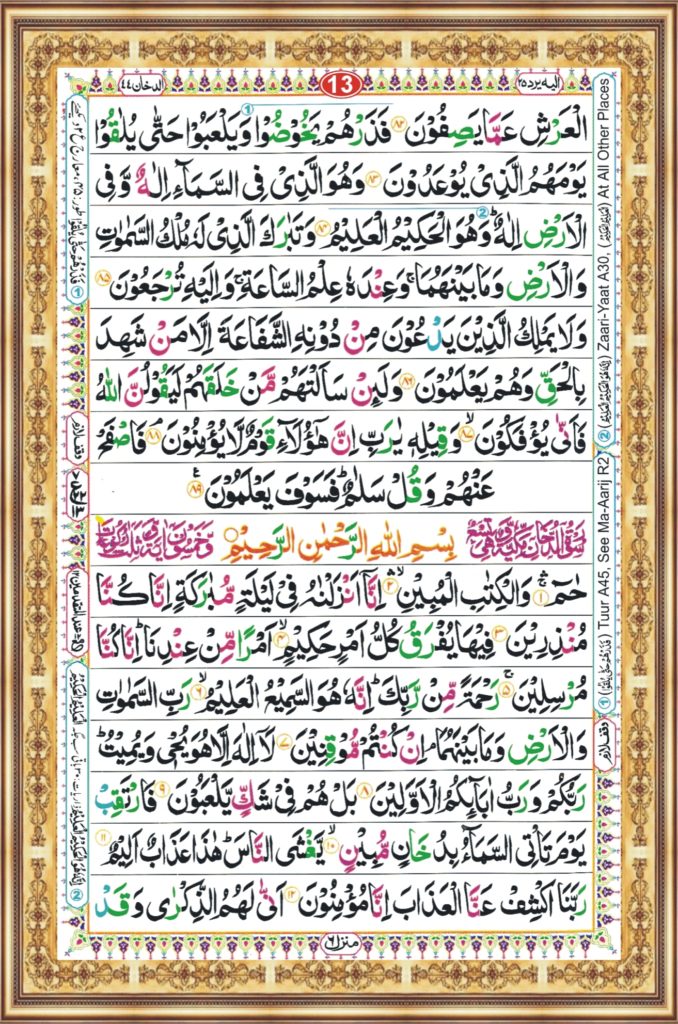 الیه یرد ٢٥ 13 الدخان ٤٤
الْعَرْشِ عَمَّا يَصِفُوْنَ ٨٢ فَذَرْهُمْ يَخُوْضُوْا وَيَلْعَبُوْا حَتّٰى يُلٰقُوْا
يَوْمَهُمُ الَّذِيْ يُوْعَدُوْنَ ٨٣ وَهُوَ الَّذِيْ فِى السَّمَآءِ اِلٰهٌ وَّفِى
الْاَرْضِ اِلٰهٌ ؕ وَهُوَ الْحَكِيْمُ الْعَلِيْمُ ٨٤ وَتَبٰرَكَ الَّذِيْ لَهٗ مُلْكُ السَّمٰوٰتِ
وَالْاَرْضِ وَمَا بَيْنَهُمَا ۚ وَعِنْدَهٗ عِلْمُ السَّاعَةِ ۚ وَاِلَيْهِ تُرْجَعُوْنَ ٨٥
وَلَا يَمْلِكُ الَّذِيْنَ يَدْعُوْنَ مِنْ دُوْنِهِ الشَّفَاعَةَ اِلَّا مَنْ شَهِدَ
بِالْحَقِّ وَهُمْ يَعْلَمُوْنَ ٨٦ وَلَئِنْ سَاَلْتَهُمْ مَّنْ خَلَقَهُمْ لَيَقُوْلُنَّ اللّٰهُ
فَاَنّٰى يُؤْفَكُوْنَ ۙ ٨٧ وَقِيْلِهٖ يٰرَبِّ اِنَّ هٰٓؤُلَآءِ قَوْمٌ لَّا يُؤْمِنُوْنَ ٨٨ فَاصْفَحْ
عَنْهُمْ وَقُلْ سَلٰمٌ ؕ فَسَوْفَ يَعْلَمُوْنَ ٨٩
بِسْمِ اللّٰهِ الرَّحْمٰنِ الرَّحِيْمِ
حٰمٓ ۚ ١ وَالْكِتٰبِ الْمُبِيْنِ ۙ ٢ اِنَّاۤ اَنْزَلْنٰهُ فِيْ لَيْلَةٍ مُّبٰرَكَةٍ اِنَّا كُنَّا
مُنْذِرِيْنَ ٣ فِيْهَا يُفْرَقُ كُلُّ اَمْرٍ حَكِيْمٍ ۙ ٤ اَمْرًا مِّنْ عِنْدِنَا ؕ اِنَّا كُنَّا
مُرْسِلِيْنَ ۚ ٥ رَحْمَةً مِّنْ رَّبِّكَ ؕ اِنَّهٗ هُوَ السَّمِيْعُ الْعَلِيْمُ ۙ ٦ رَبِّ السَّمٰوٰتِ
وَالْاَرْضِ وَمَا بَيْنَهُمَا ۘ اِنْ كُنْتُمْ مُّوْقِنِيْنَ ٧ لَاۤ اِلٰهَ اِلَّا هُوَ يُحْيٖ وَيُمِيْتُ ؕ
رَبُّكُمْ وَرَبُّ اٰبَآئِكُمُ الْاَوَّلِيْنَ ٨ بَلْ هُمْ فِيْ شَكٍّ يَّلْعَبُوْنَ ٩ فَارْتَقِبْ
يَوْمَ تَاْتِى السَّمَآءُ بِدُخَانٍ مُّبِيْنٍ ۙ ١٠ يَّغْشَى النَّاسَ ؕ هٰذَا عَذَابٌ اَلِيْمٌ ١١
رَبَّنَا اكْشِفْ عَنَّا الْعَذَابَ اِنَّا مُؤْمِنُوْنَ ١٢ اَنّٰى لَهُمُ الذِّكْرٰى وَقَدْ
منزل ٦
① Tuur A45, See Ma-Aarij R2
② Zaari-Yaat A30, At All Other Places
وقف لازم
وقف لازم